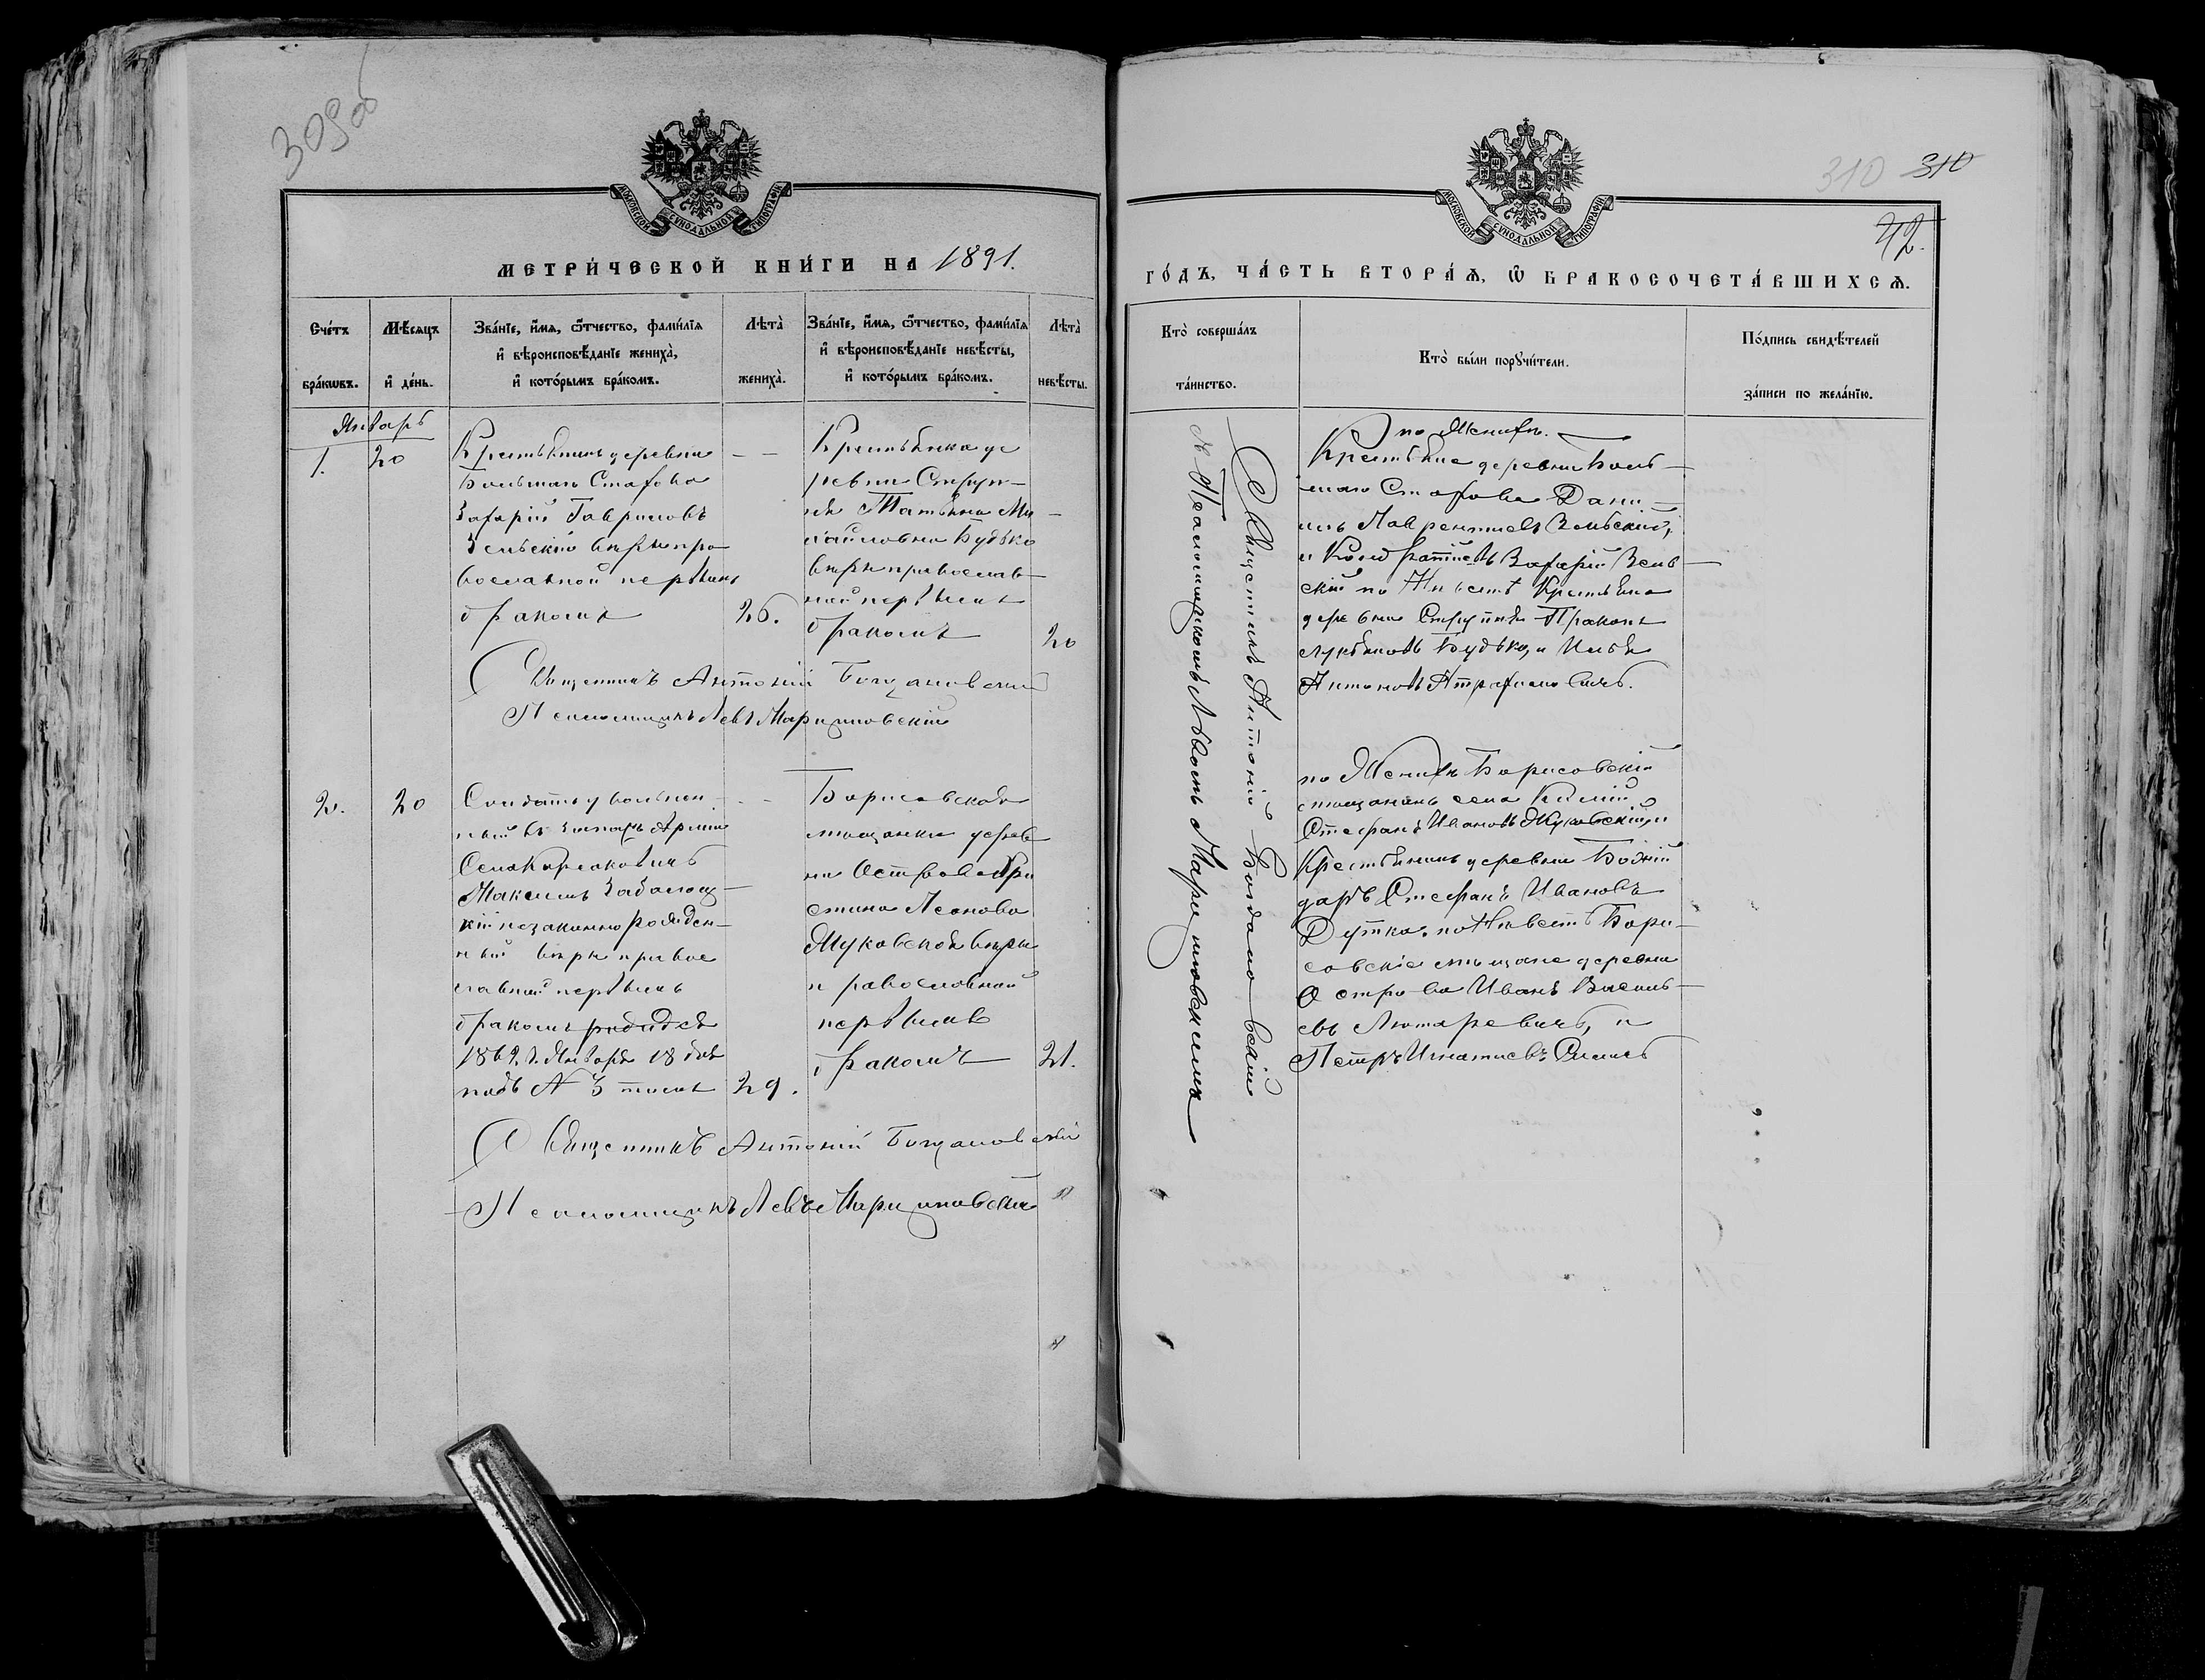 309об
МОСКОВСКОЙ СѴНОДАЛЬНОЙ ТИПОГРАФІИ
МЕТРИ́ЧЕСКОЙ КНИ́ГИ НА 1891.
Сче́тъ бра́ковъ.
Мѣ́сяцъ и҆ де́нь.
Зва́нїе, и҆́мѧ, ѻ҆́тчество, фами́лїѧ и҆ вѣроисповѣ́данїе жениха̀, и҆ кото́рымъ бра́комъ.
Лѣта̀ жениха̀.
Зва́нїе, и҆́мѧ, ѻ҆́тчество, фами́лїѧ и҆ вѣроисповѣ́данїе невѣ́сты, и҆ кото́рымъ бра́комъ.
Лѣта̀ невѣ́сты.
Январь
1.
20
Крестьянинъ деревни
Большаго Стахова
Захарій Гавриловъ
Зельскій вѣры пра
вославной первымъ
бракомъ
26.
Крестьянка де
ревни Струп-
ня Татьяна Ми-
хайловна Будько
вѣры православ-
ной первымъ
бракомъ
20
Священникъ Антоній Богдановскій
Псаломщикъ Левъ Марциновскій
2.
20
Солдатъ уволен-
ный въ запасъ Арміи
Максимъ Заболоц-
кій незаконнорожден-
ный вѣры правос
лавной первымъ
бракомъ родился
1862 г. Января 18 дня
подъ № 3
29.
Борисовская
мѣщанка дерев
ни Острова Хри
стина Леонова
Жуковская вѣры
православной
первымъ
бракомъ
21.
Священникъ Антоній Богдановскій
Псаломщикъ Левъ Марциновскій
310 310
42.
МОСКОВСКОЙ СѴНОДАЛЬНОЙ ТИПОГРАФІИ
ГО́ДЪ, ЧА́СТЬ ВТОРА́Ѧ, Ѡ҆ БРАКОСОЧЕТА́ВШИХСѦ.
Кто̀ соверша́лъ та́инство.
Кто̀ бы́ли порꙋчи́тели.
По́дпись свидѣ́телей за́писи по жела́нїю.
Священникъ Антоній Богдановскій
съ Псаломщикомъ Львомъ Марциновскимъ
по Женихѣ.
Крестьяне деревни Боль-
шаго Стахова Дани-
илъ Лаврентіевъ Зельскій,
и Кондратіевъ Захарій Зель-
скій по Невестѣ Крестьяне
деревни Струпня Прокопъ
Лукьяновъ Будько, и Илья
Антоновъ Атрахимовичъ.
по Женихѣ Борисовскій
мѣщанинъ села
Стефанъ Ивановъ Жуковскій, и
Крестьянинъ деревни Божій
даръ Стефанъ Ивановъ
Дутко. по Невестѣ Бори-
совскіе мѣщане деревни
Острова Иванъ Василь-
евъ Лютаревичъ, и
Петръ Игнатіевъ